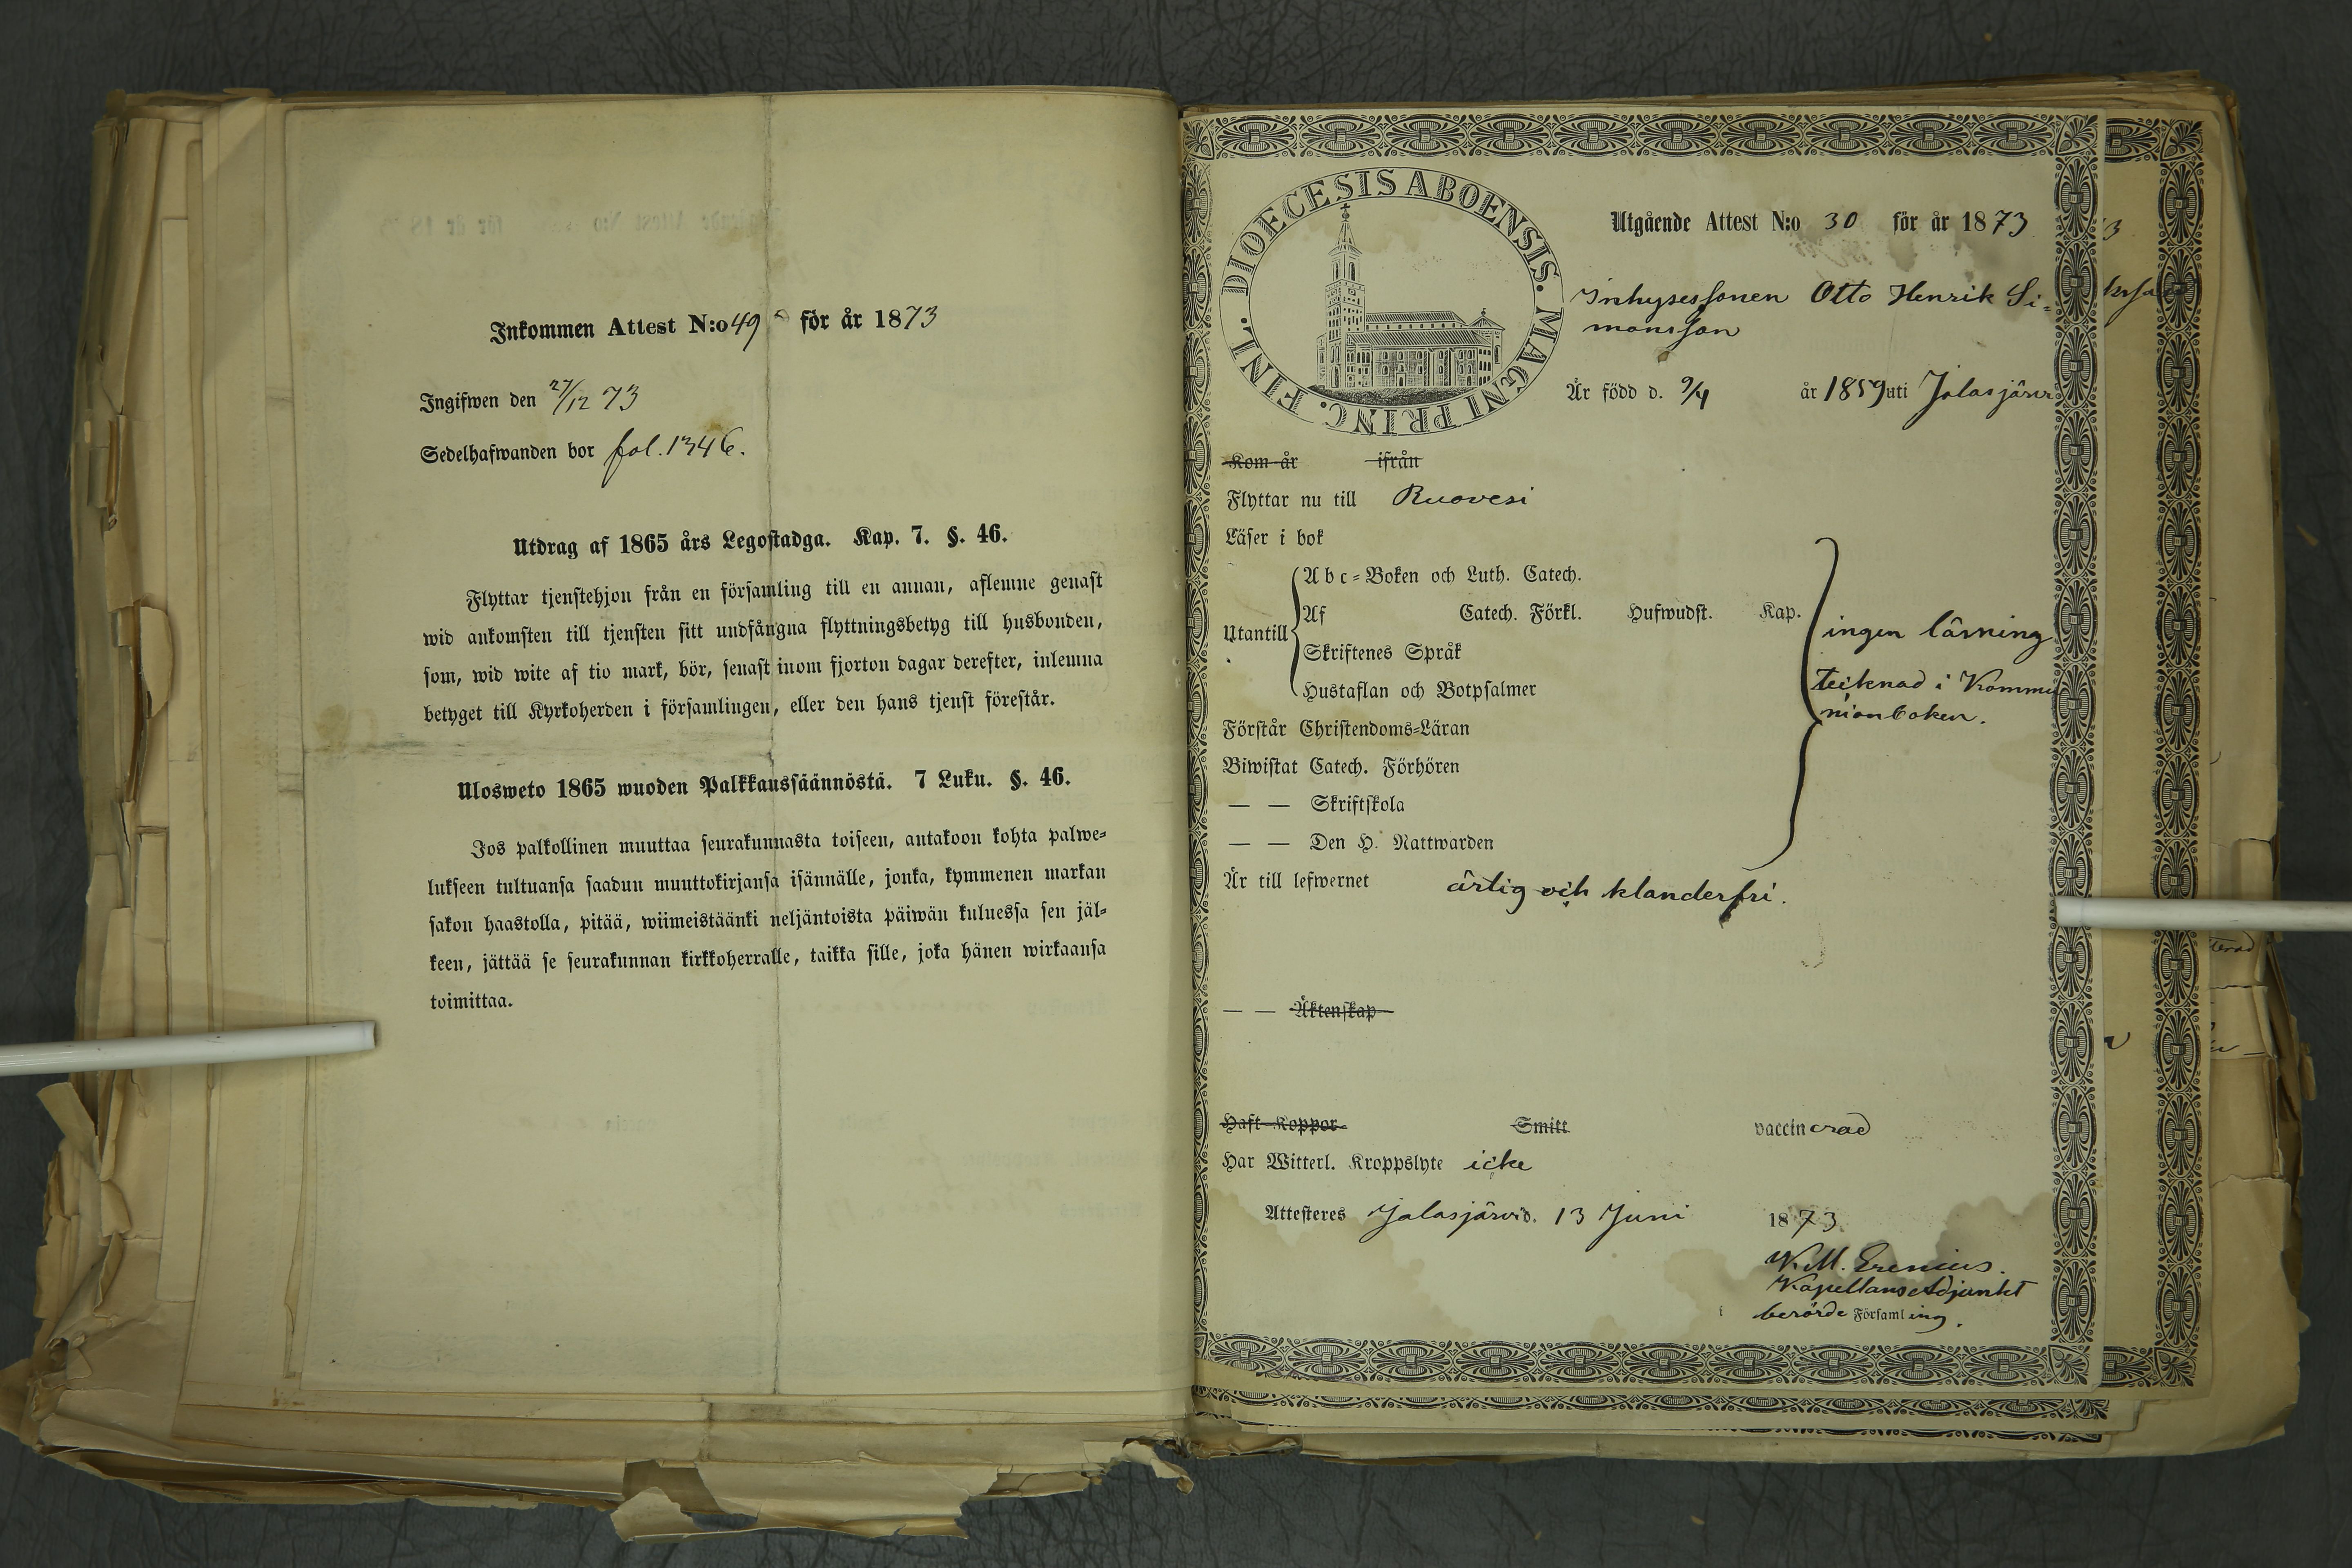 Inkommen Attest N:o 49 för år 1873
Ingifwen den 27/12 73
Sedelhafwanden bor fol. 1346.
Utdrag af 1865 års Legostadga. Kap. 7. §. 46.
Flyttar tjenstehjon från en församling till en annan, aflemne genast
wid ankomsten till tjensten sitt undfångna flyttningsbetyg till husbonden,
som, wid wite af tio mark, bör, senast inom fjorton dagar derefter, inlemna
betyget till Kyrkoherden i församlingen, eller den hans tjenst förestår.
Ulosweto 1865 wuoden Palkkaussäännöstä. 7 Luku. §. 46.
Jos palkollinen muuttaa seurakunnasta toiseen, antakoon kohta palwe-
lukseen tultuansa saadun muuttokirjansa isännälle, jonka, kymmenen markan
sakon haastolla, pitää, wiimeistäänki neljäntoista päiwän kuluessa sen jäl-
keen, jättää se seurakunnan kirkkoherralle, taikka sille, joka hänen wirkaansa
toimittaa.
DIOECESIS ABOENSIS. MAGNI PRINC. FINL.
Utgående Attest N:o 30 för år 1873
Inhysessonen Otto Henrik Si-
monsson
Är född d. 9/4 år 1859 uti Jalasjärvi
Kom år ifrån
Flyttar nu till Ruovesi
Läser i bok
Utantill
Abc-Boken och Luth. Catech.
Af Catech. Förkl. Hufwudst. Kap.
Skriftenes Språk
Hustaflan och Botpsalmer
ingen läsning
tecknad i Kommu
nionboken.
Förstår Christendoms-Läran
Biwistat Catech. Förhören
— — Skriftskola
— — Den H. Nattwarden
Är till lefwernet ärlig och klanderfri.
— — Äktenskap
Haft Koppor Smitt vaccinerad
Har Witterl. Kroppslyte icke
Attesteres Jalasjärvi d. 13 Juni 1873
Kapellansadjunkt
i berörde Församling.